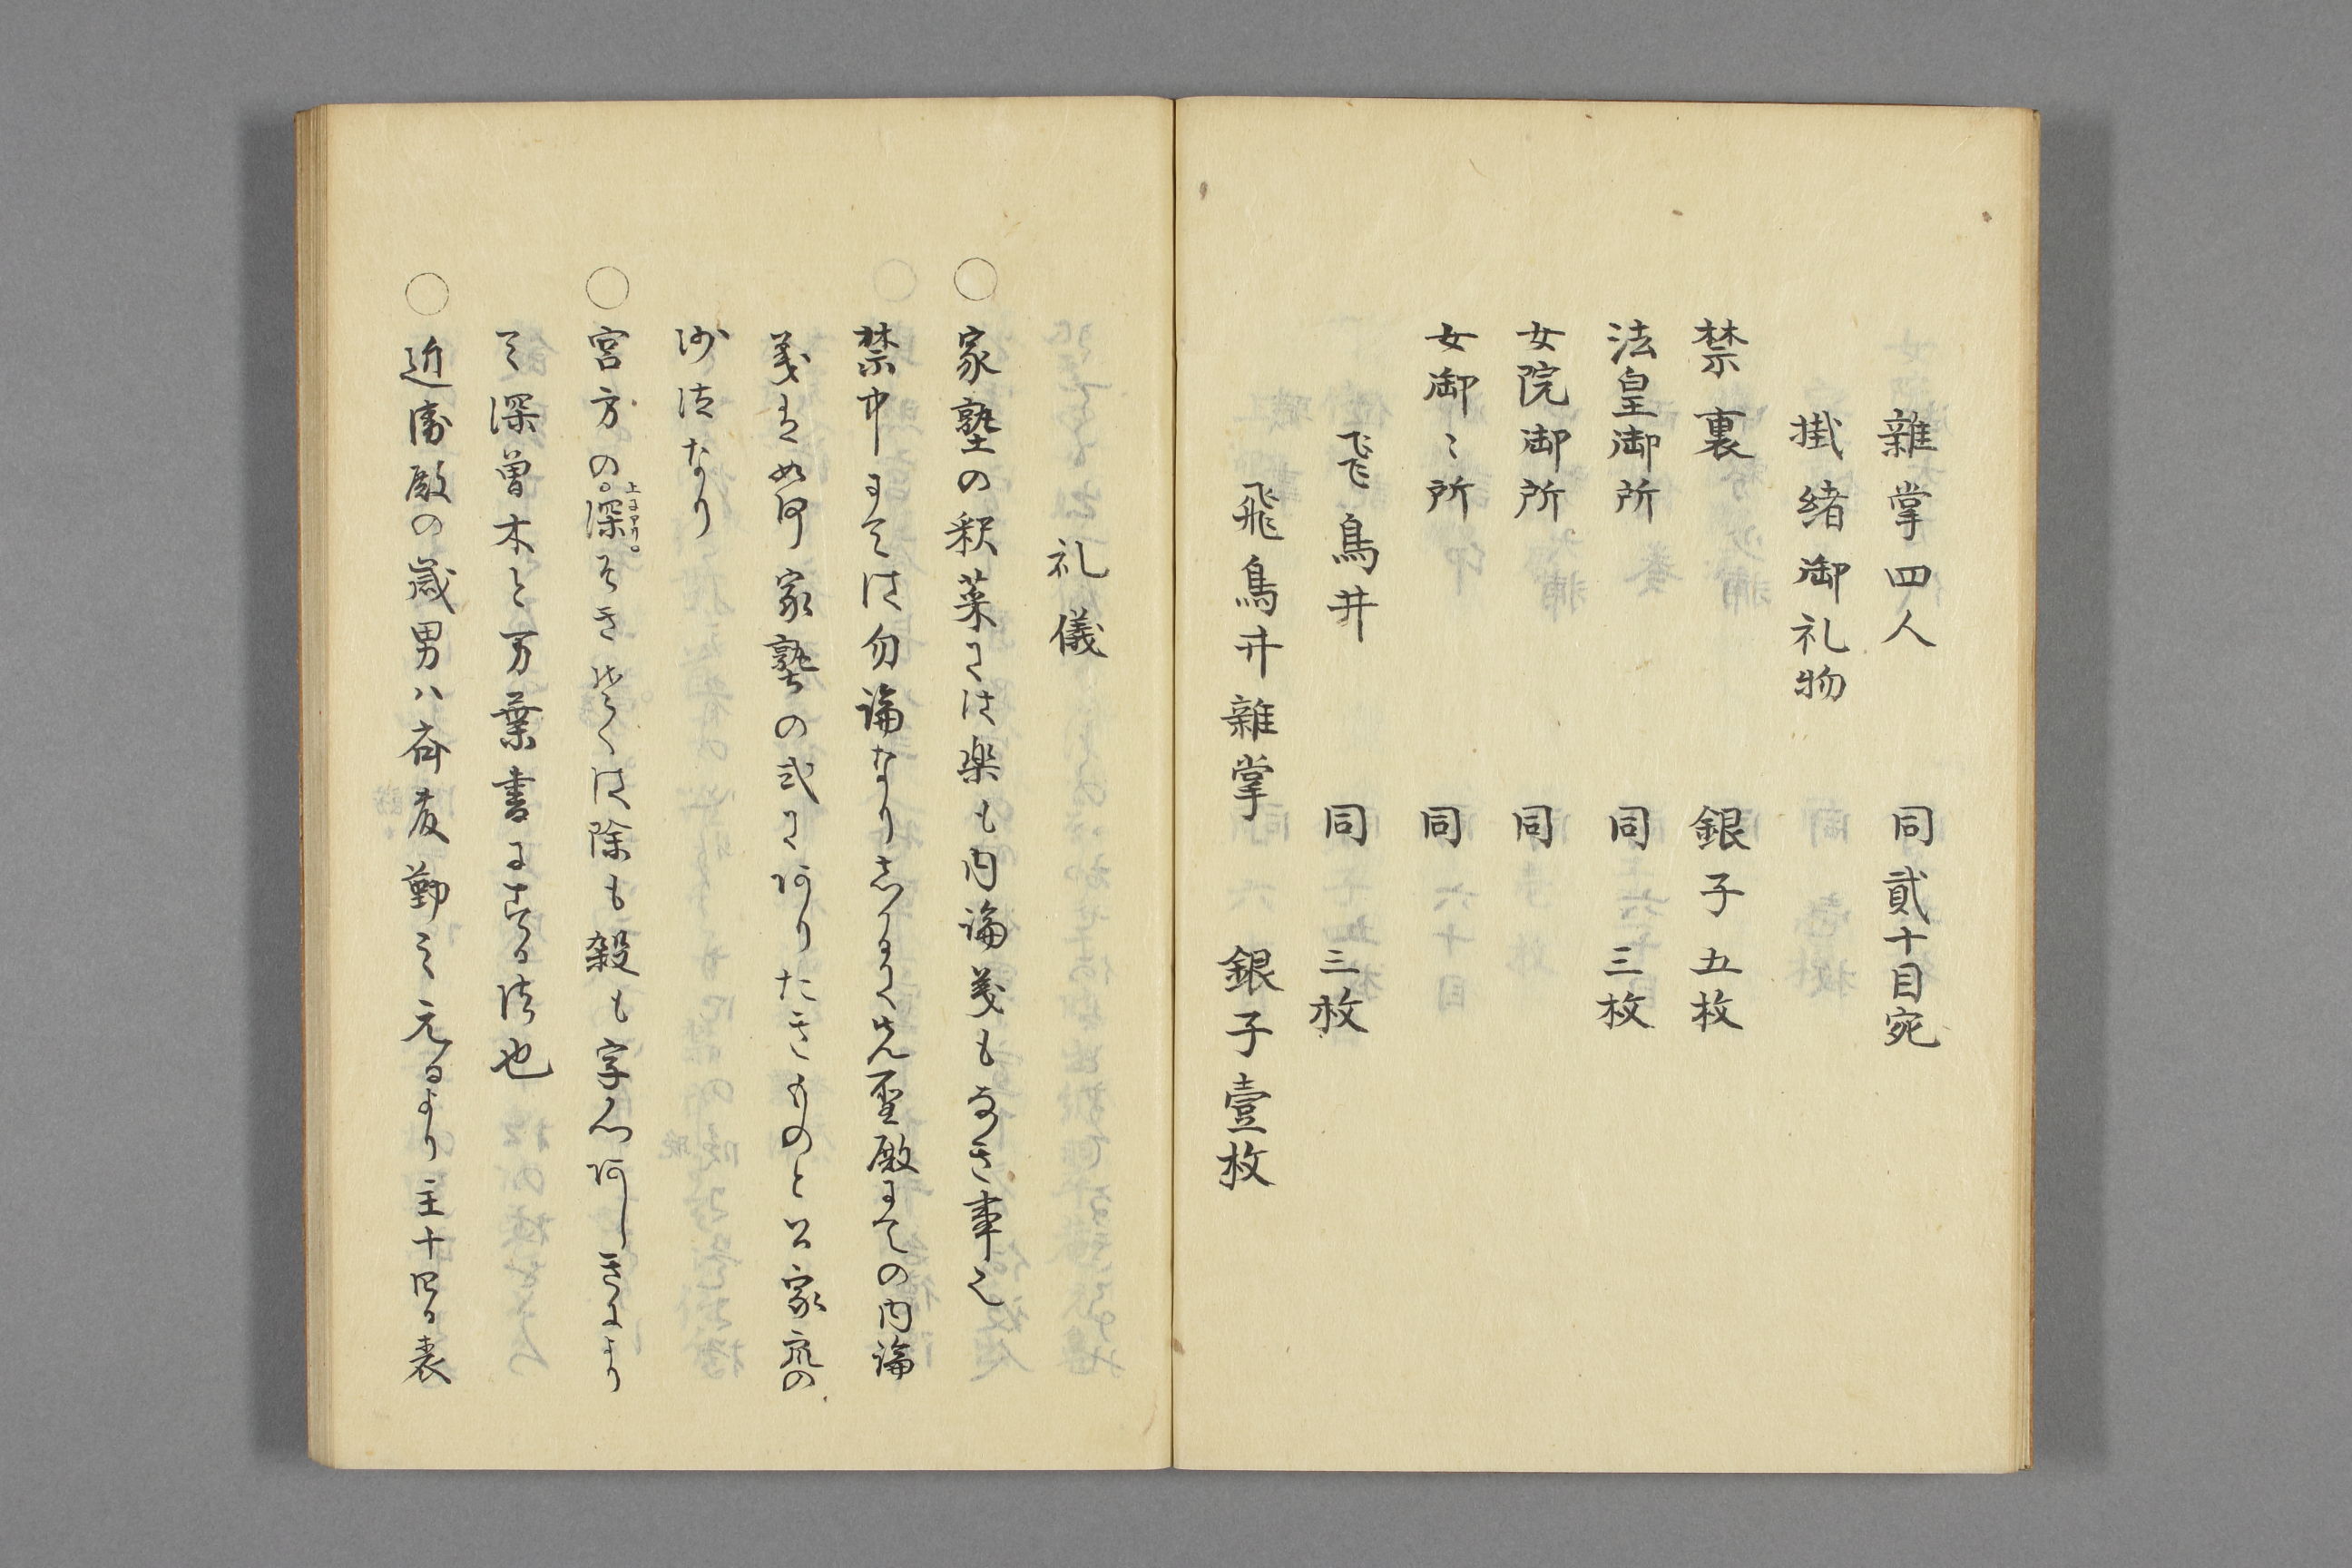 雜掌四人　同貳十目宛
掛緒御礼物
禁裏　銀子五枚
法皇御所　同三枚
女院御所　同
女御〻所　同
飛鳥井　同三枚
飛鳥井雜掌　銀子壹枚
礼儀
○家塾の釈菜には楽も内論義もなき事也
禁中にては勿論なり
義は如何家塾の式にありたきものと公家衆の
沙法なり
○宮方の。深そき
上にアリ。
て深曽木と万葉書にする法也
○近衛殿の歳男ハ斉藤勤て元日より主十四日表